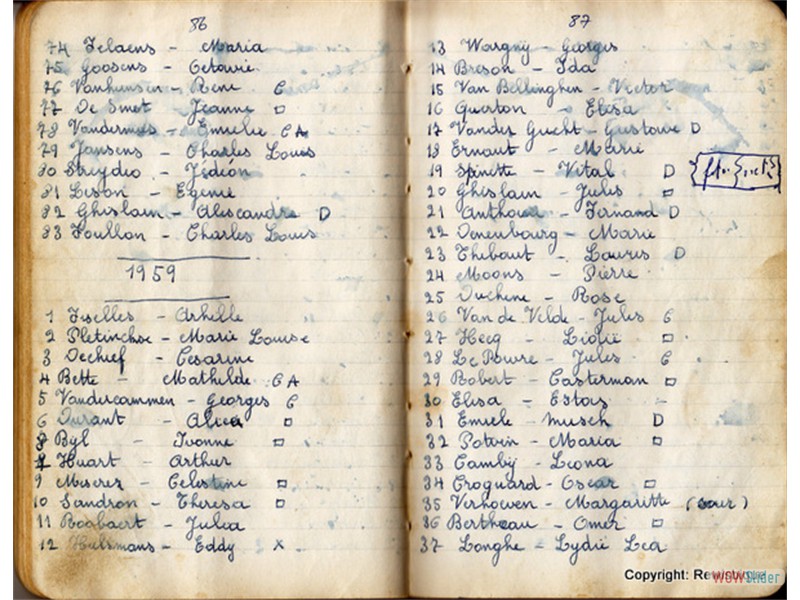 86
74 Jelaens - Maria
75 Goosens - Octavie
76 Vanhumsen - Rene C
77 De Smet Jeanne □
78 Vandermus - Emelie C A
79 Jansens - Charles Louis
80 Streydio - Jédéon
81 Lison - Egenie
82 Ghislain - Aliscandre D
83 Foullon - Charles Louis
1959
1 Isselles - Arhille
2 Pletinckse - Marie Louise
3 Dechief - Cesarine
4 Bette - Mathilde C A
5 Vandercammen - Georges C
6 Durant - Alice □
8 Byl - Ivonne □
Huart - Arthur
9 Miserez - Celestine □
10 Sandron - Theresa □
11 Bogbaert - Julia
12 Hulsmans - Eddy X
87
13 Wargny - Georges
14 Breson - Ida
15 Van Bellinghen - Victor
16 Querton - Elisa
17 Vander Gucht - Gustave D
18 Ernaut - Marie
19 Spinette - Vital D
20 Ghislain - Jules □
21 Anthoun - Fernand D
22 Denenbourg - Marie
23 Thibaut - Louris D
24 Moons - Pierre
25 Duchene - Rose
26 Van de Velde - Jules C
27 Hecq - Lidie □
28 Le Pauvre - Jules C
29 Robert - Casterman □
30 Elisa - Estas -
31 Emiele - Musch D
32 Potvin - Maria □
33 Cambij - Leona
34 Croquard - Oscar □
35 Verhowen - Margaritte (sœur)
36 Bertheau - Omer □
37 Longhe - Lydie Lea
Copyright:
WOWSlider